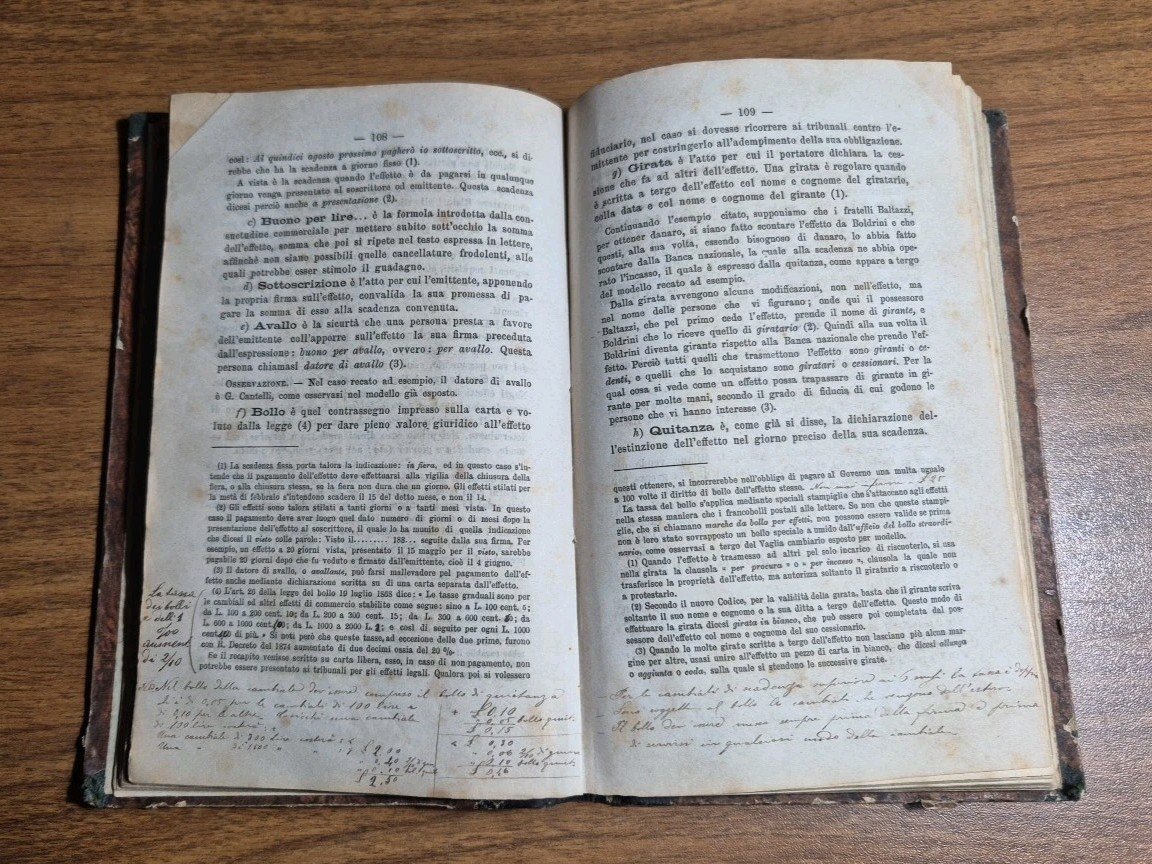 — 108 —
così: Ai quindici agosto prossimo pagherò io sottoscritto, ecc., si di-
rebbe che ha la scadenza a giorno fisso (1).
A vista è la scadenza quando l'effetto è da pagarsi in qualunque
giorno venga presentato al soscrittore od emittente. Questa scadenza
dicesi perciò anche a presentazione (2).
c) Buono per lire... è la formola introdotta dalla con-
suetudine commerciale per mettere subito sott'occhio la somma
dell'effetto, somma che poi si ripete nel testo espressa in lettere,
affinchè non siano possibili quelle cancellature frodolenti, alle
quali potrebbe esser stimolo il guadagno.
d) Sottoscrizione è l'atto per cui l'emittente, apponendo
la propria firma sull'effetto, convalida la sua promessa di pa-
gare la somma di esso alla scadenza convenuta.
e) Avallo è la sicurtà che una persona presta a favore
dell'emittente coll'apporre sull'effetto la sua firma preceduta
dall'espressione: buono per avallo, ovvero: per avallo. Questa
persona chiamasi datore di avallo (3).
OSSERVAZIONE. — Nel caso recato ad esempio, il datore di avallo
è G. Cantelli, come osservasi nel modello già esposto.
f) Bollo è quel contrassegno impresso sulla carta e vo-
luto dalla legge (4) per dare pieno valore giuridico all'effetto
(1) La scadenza fissa porta talora la indicazione: in fiera, ed in questo caso s'in-
tende che il pagamento dell'effetto deve effettuarsi alla vigilia della chiusura della
fiera, o alla chiusura stessa, se la fiera non dura che un giorno. Gli effetti stilati per
la metà di febbraio s'intendono scadere il 15 del detto mese, e non il 14.
(2) Gli effetti sono talora stilati a tanti giorni o a tanti mesi vista. In questo
caso il pagamento deve aver luogo quel dato numero di giorni o di mesi dopo la
presentazione dell'effetto al soscrittore, il quale lo ha munito di quella indicazione
che dicesi il visto colle parole: Visto il......... 188... seguito dalla sua firma. Per
esempio, un effetto a 20 giorni vista, presentato il 15 maggio per il visto, sarebbe
pagabile 20 giorni dopo che fu veduto e firmato dall'emittente, cioè il 4 giugno.
(3) Il datore di avallo, o avallante, può farsi mallevadore pel pagamento dell'ef-
fetto anche mediante dichiarazione scritta su di una carta separata dall'effetto.
(4) L'art. 26 della legge del bollo 19 luglio 1868 dice: « Le tasse graduali sono per
le cambiali ed altri effetti di commercio stabilite come segue: sino a L. 100 cent. 5;
da L. 100 a 200 cent. 10; da L. 200 a 300 cent. 15; da L. 300 a 600 cent.
L. 600 a 1000 cent. da L. 1000 a 2000 L. e così di seguito per ogni L. 1000
cent. di più. » Si noti però che queste tasse, ad eccezione delle due prime, furono
con R. Decreto del 1874 aumentate di due decimi ossia del 20 %.
Se il recapito venisse scritto su carta libera, esso, in caso di non pagamento, non
potrebbe essere presentato ai tribunali per gli effetti legali. Qualora poi si volessero
La tassa
dei bolli
è dell' 1
aumento
di 2/10
Nel bollo della cambiale dev'esser compreso il bollo di quietanza
è di 0,05 per le cambiali di 100 lire e
di 0,10 per le altre. cambiale
di 100 lire costerà
Una cambiale di 300 lire costerà
£ 2.00
0,40
0,10
£ 2.50
£ 0,10
0,05 bollo quiet.
£ 0,15
£ 0,30
0,06
0,10 bollo quiet.
£ 0,46
— 109 —
fiduciario, nel caso si dovesse ricorrere ai tribunali contro l'e-
mittente per costringerlo all'adempimento della sua obbligazione.
g) Girata è l'atto per cui il portatore dichiara la ces-
sione che fa ad altri dell'effetto. Una girata è regolare quando
è scritta a tergo dell'effetto col nome e cognome del giratario,
colla data e col nome e cognome del girante (1).
Continuando l'esempio citato, supponiamo che i fratelli Baltazzi,
per ottener danaro, si siano fatto scontare l'effetto da Boldrini e che
questi, alla sua volta, essendo bisognoso di danaro, lo abbia fatto
scontare dalla Banca nazionale, la quale alla scadenza ne abbia ope-
rato l'incasso, il quale è espresso dalla quitanza, come appare a tergo
del modello recato ad esempio.
Dalla girata avvengono alcune modificazioni, non nell'effetto, ma
nel nome delle persone che vi figurano; onde qui il possessore
Baltazzi, che pel primo cede l'effetto, prende il nome di girante, e
Boldrini che lo riceve quello di giratario (2). Quindi alla sua volta il
Boldrini diventa girante rispetto alla Banca nazionale che prende l'ef-
fetto. Perciò tutti quelli che trasmettono l'effetto sono giranti o ce-
denti, e quelli che lo acquistano sono giratari o cessionari. Per la
qual cosa si vede come un effetto possa trapassare di girante in gi-
rante per molte mani, secondo il grado di fiducia di cui godono le
persone che vi hanno interesse (3).
h) Quitanza è, come già si disse, la dichiarazione del-
l'estinzione dell'effetto nel giorno preciso della sua scadenza.
questi ottenere, si incorrerebbe nell'obbligo di pagare al Governo una multa uguale
a 100 volte il diritto di bollo dell'effetto stesso.
La tassa del bollo s'applica mediante speciali stampiglie che s'attaccano agli effetti
nella stessa maniera che i francobolli postali alle lettere. Se non che queste stampi-
glie, che si chiamano marche da bollo per effetti, non possono essere valide se prima
non è loro stato sovrapposto un bollo speciale a umido dall'ufficio del bollo straordi-
nario, come osservasi a tergo del Vaglia cambiario esposto per modello.
(1) Quando l'effetto è trasmesso ad altri pel solo incarico di riscuoterlo, si usa
nella girata la clausola « per procura » o « per incasso », clausola la quale non
trasferisce la proprietà dell'effetto, ma autorizza soltanto il giratario a riscuoterlo o
a protestarlo.
(2) Secondo il nuovo Codice, per la validità della girata, basta che il girante scriva
soltanto il suo nome e cognome o la sua ditta a tergo dell'effetto. Questo modo di
effettuare la girata dicesi girata in bianco, che può essere poi completata dal pos-
sessore dell'effetto col nome e cognome del suo cessionario.
(3) Quando le molte girate scritte a tergo dell'effetto non lasciano più alcun mar-
gine per altre, usasi unire all'effetto un pezzo di carta in bianco, che dicesi allunga
o aggiunta o coda, sulla quale si stendono le successive girate.
Per le cambiali di scadenza superiore ai 6 mesi la tassa è
Sono soggetti al bollo le cambiali che vengono dell'estero
Il bollo dev'esser messo sempre prima della firma o prima
di servirsi in qualsiasi modo della cambiale